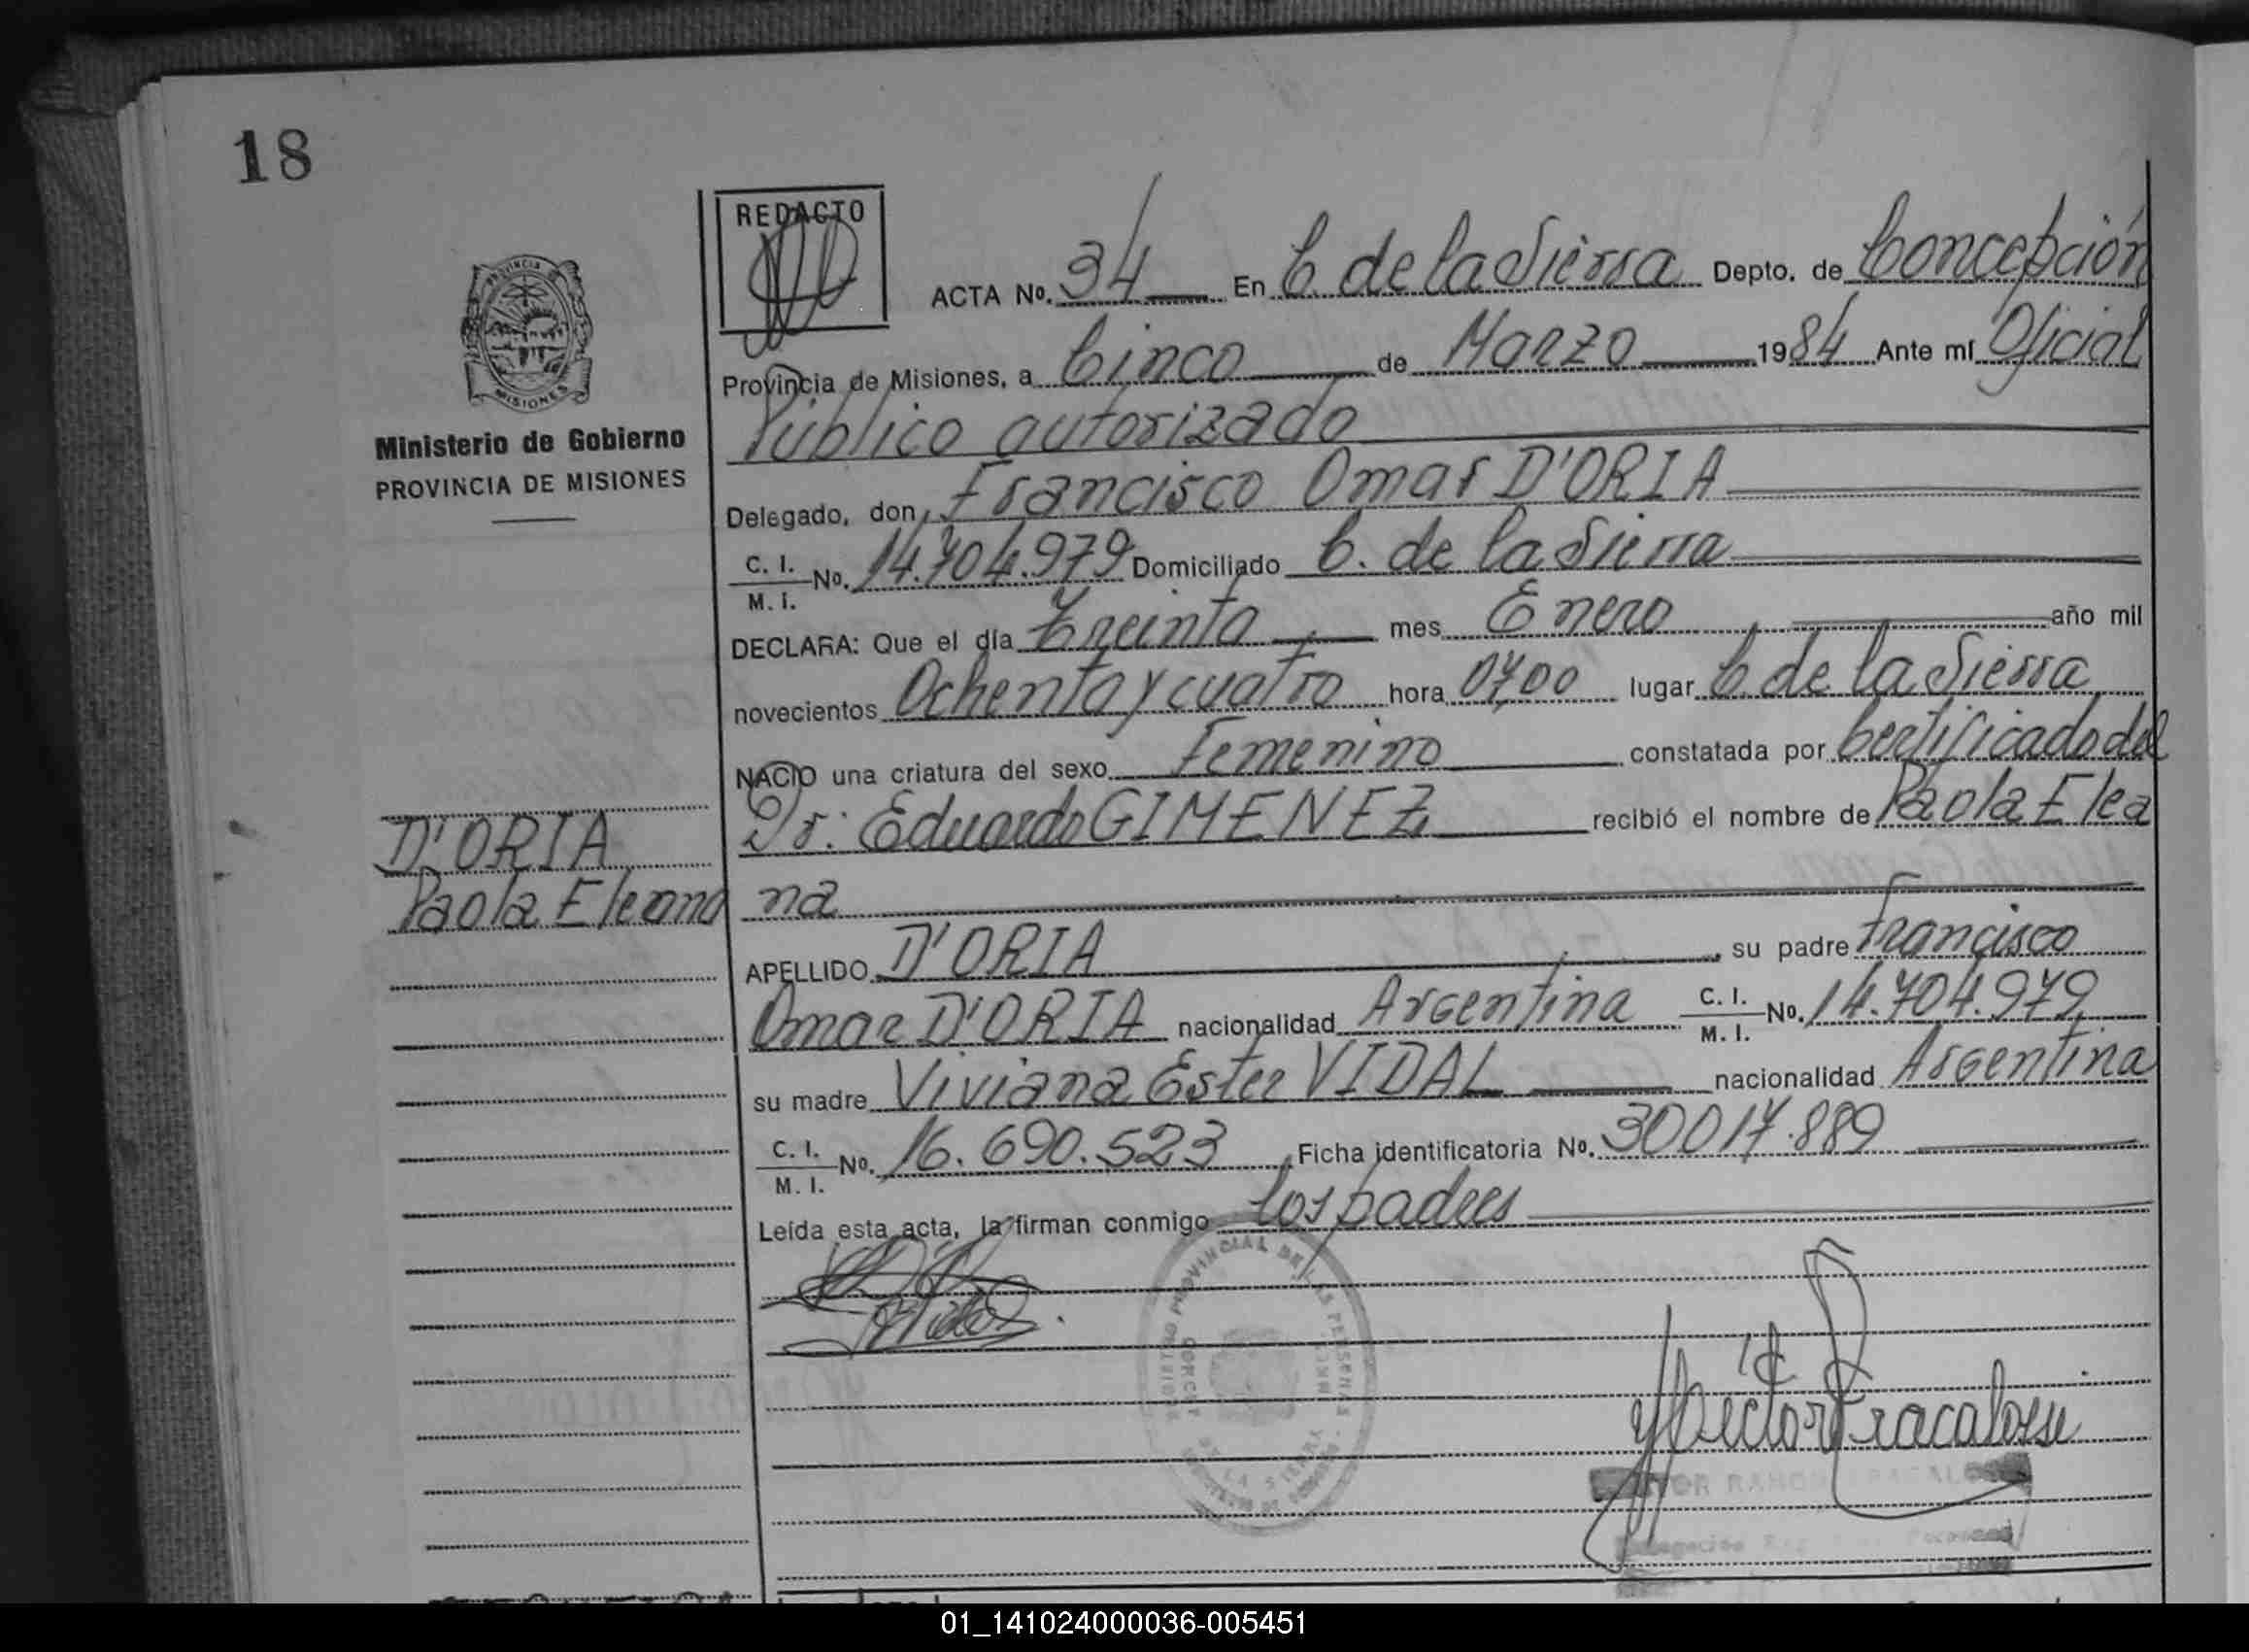 18
REDACTO
ACTA No. 34 En C. de la Sierra Depto. de Concepción
Provincia de Misiones, a Cinco de Marzo 1984 Ante mí Oficial
Público autorizado
Delegado, don, Francisco Omar D'ORIA
C. I.
M. I. No. 14.704.979 Domiciliado C. de la Sierra
DECLARA: Que el día Treinta mes Enero año mil
novecientos Ochenta y cuatro hora 07,00 lugar C. de la Sierra
NACIO una criatura del sexo Femenino constatada por Certificado del
Dr. Eduardo GIMENEZ recibió el nombre de Paola Elea
na
APELLIDO D'ORIA, su padre Francisco
Omar D'ORIA nacionalidad Argentina C. I.
M. I. No. 14.704.979
su madre Viviana Ester VIDAL nacionalidad Argentina
C. I.
M. I. No. 16.690.523 Ficha identificatoria No. 30017.889
Leída esta acta, la firman conmigo los padres
PROVINCIA
MISIONES
Ministerio de Gobierno
PROVINCIA DE MISIONES
D'ORIA
Paola
REGISTRO PROVINCIAL DE LAS PERSONAS
DE LA SIERRA
Héctor Fracalossi
01_141024000036-005451